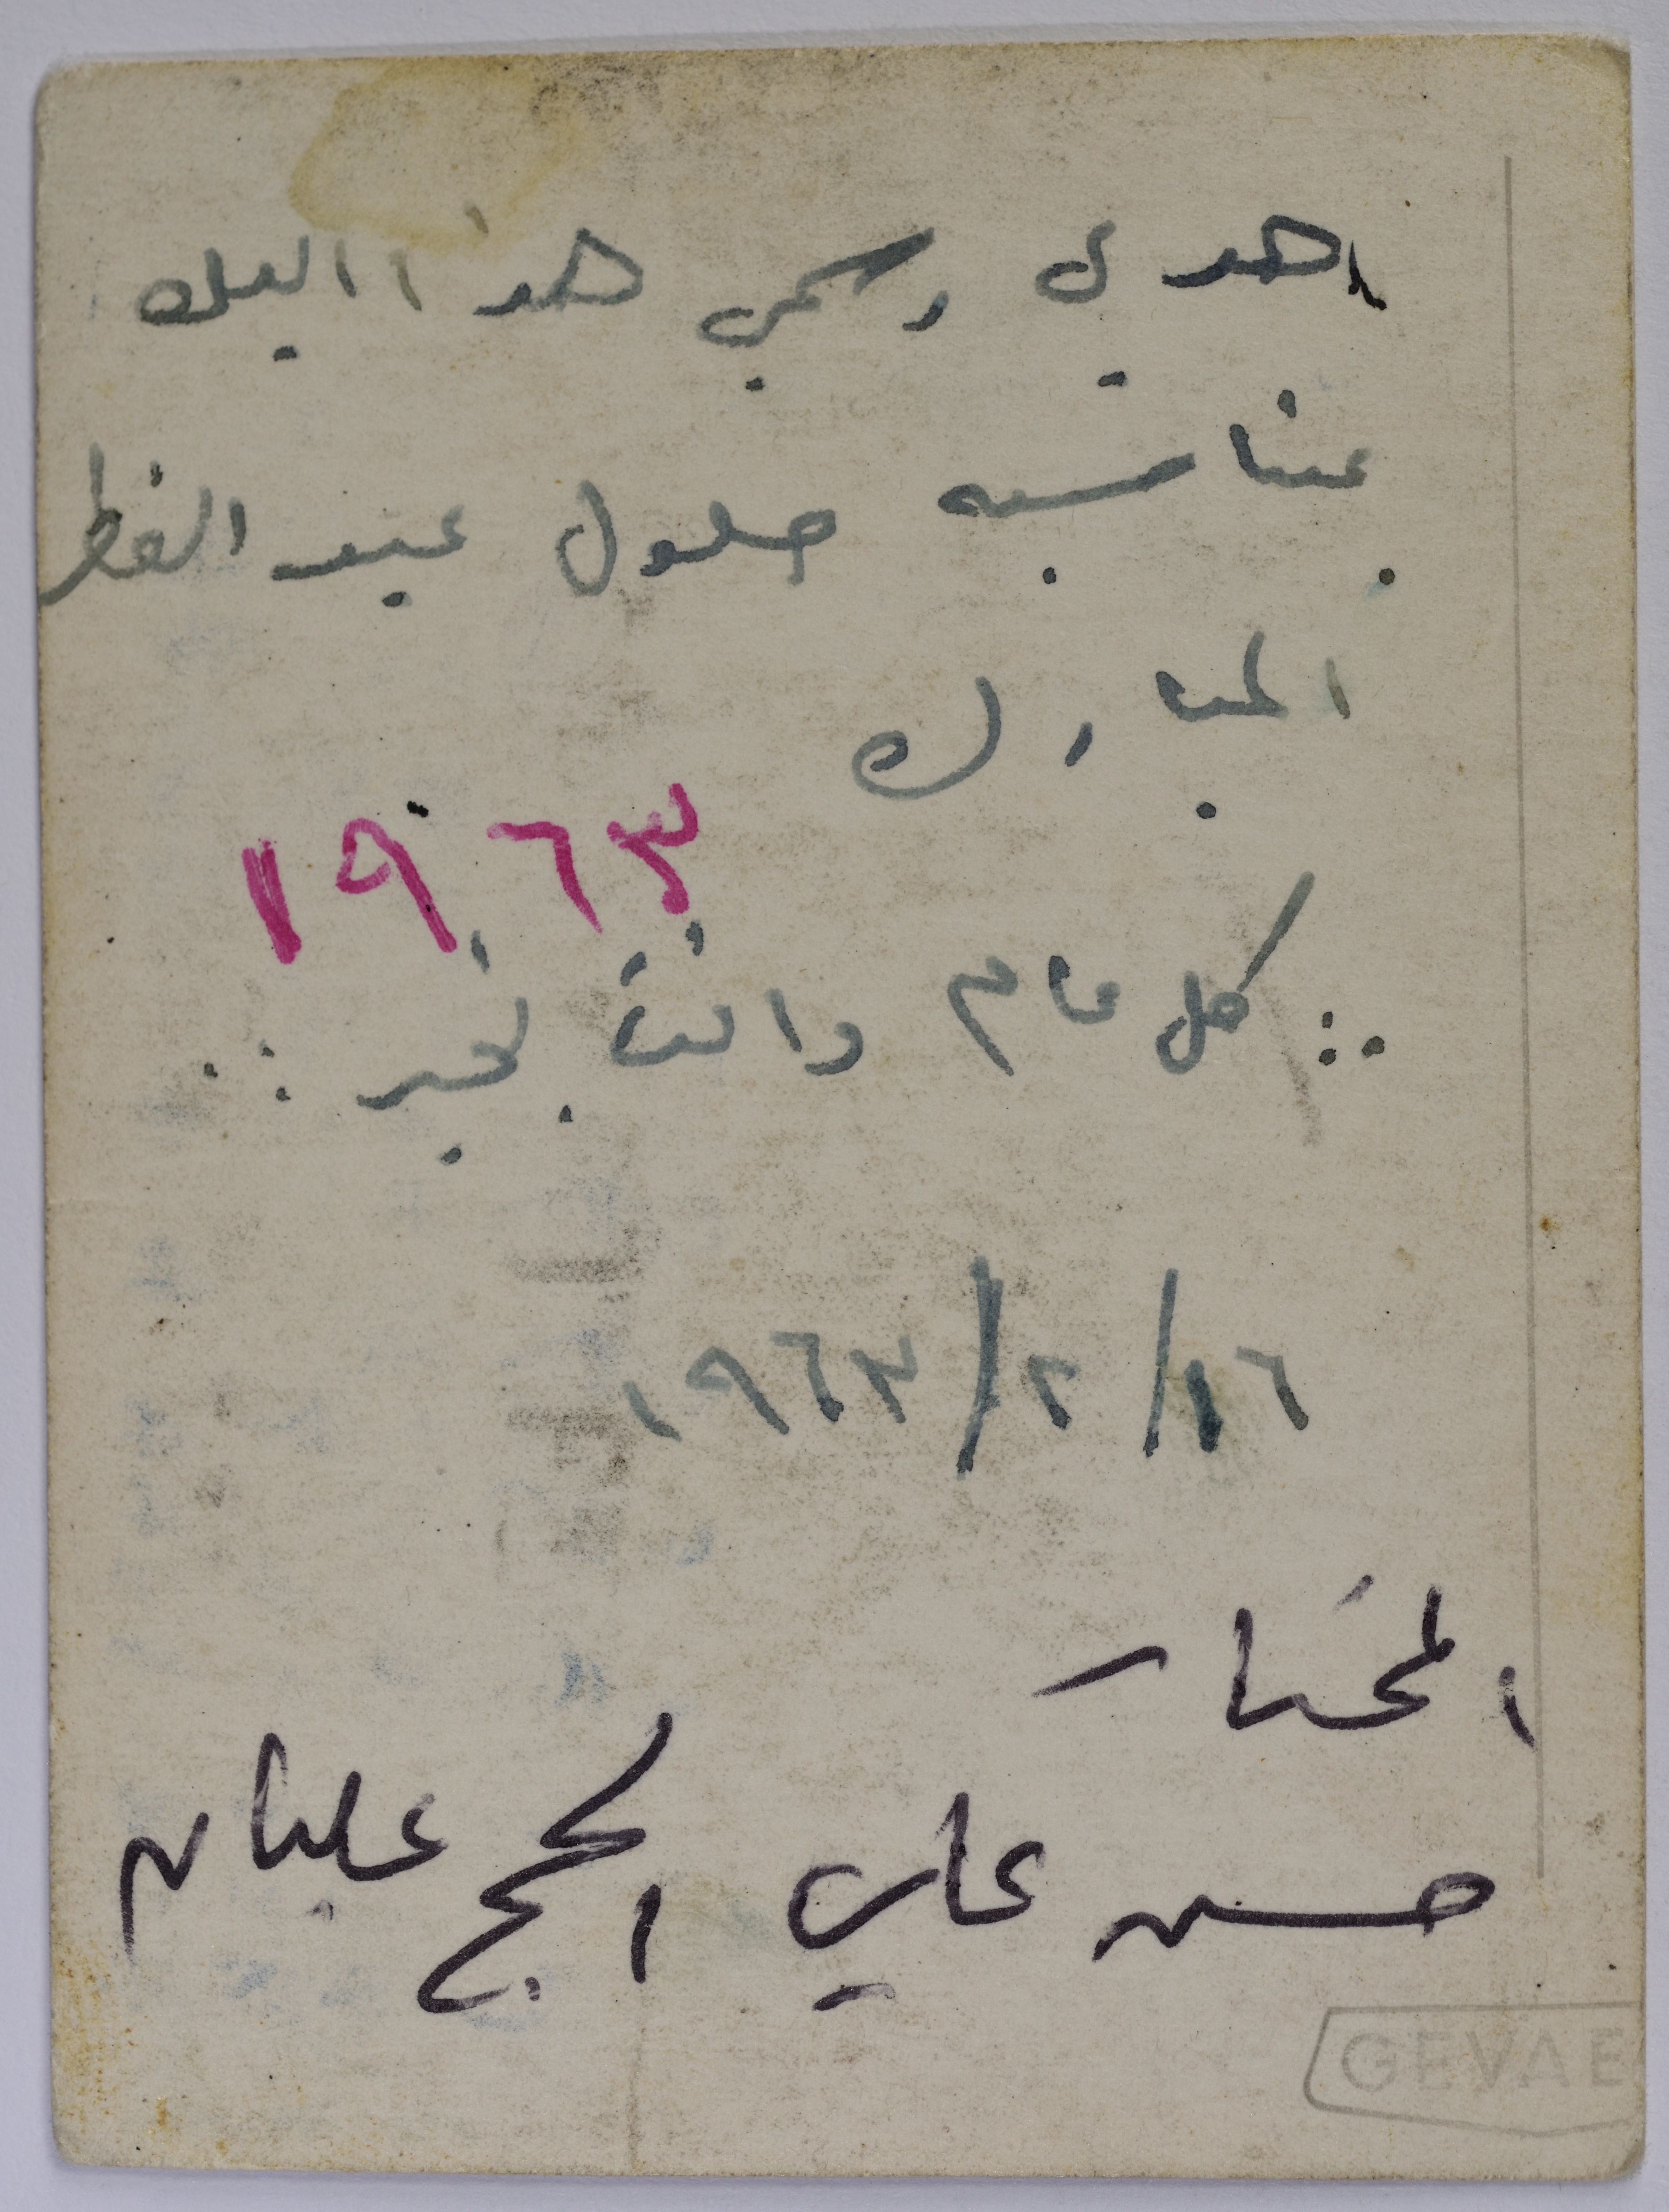 اهدي رسمي هذا اليك
بمناسبه حلول عيد الفطر
المبارك
١٩٦٣
.: كل عام وانت بخير :.
١٦/٢/١٩٦٣
المختار
حسن علي الحج عليان
GEVAE